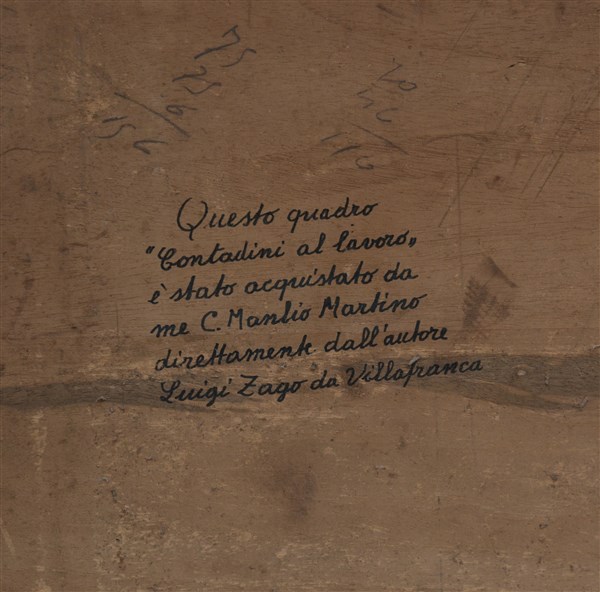 Questo quadro
"Contadini al lavoro„
è stato acquistato da
me C. Manlio Martino
direttamente dall'autore
Luigi Zago da Villafranca